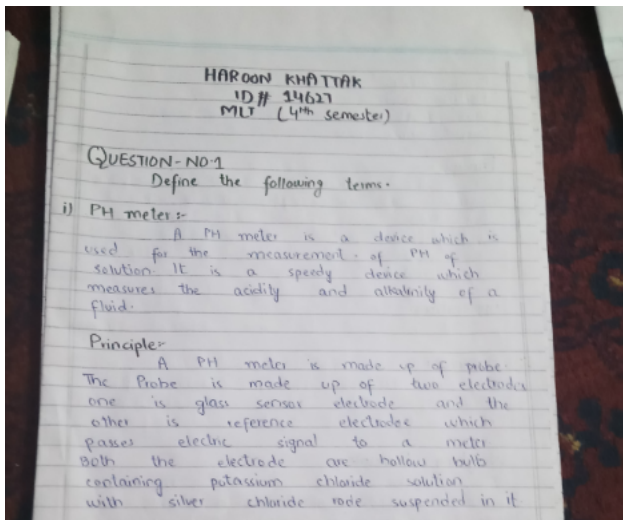 HAROON KHATTAK
ID# 14627
MLT (4th semester)
QUESTION-NO.1
Define the following terms.
i) PH meter :-
A PH meter is a device which is
used for the measurement of PH of
solution. It is a speedy device which
measures the acidity and alkalinity of a
fluid.
Principle:-
A PH meter is made up of probe.
The Probe is made up of two electrodes
one is glass sensor electrode and the
other is reference electrode which
passes electric signal to a meter
Both the electrode are hollow bulb
containing potassium chloride solution
with silver chloride rode suspended in it